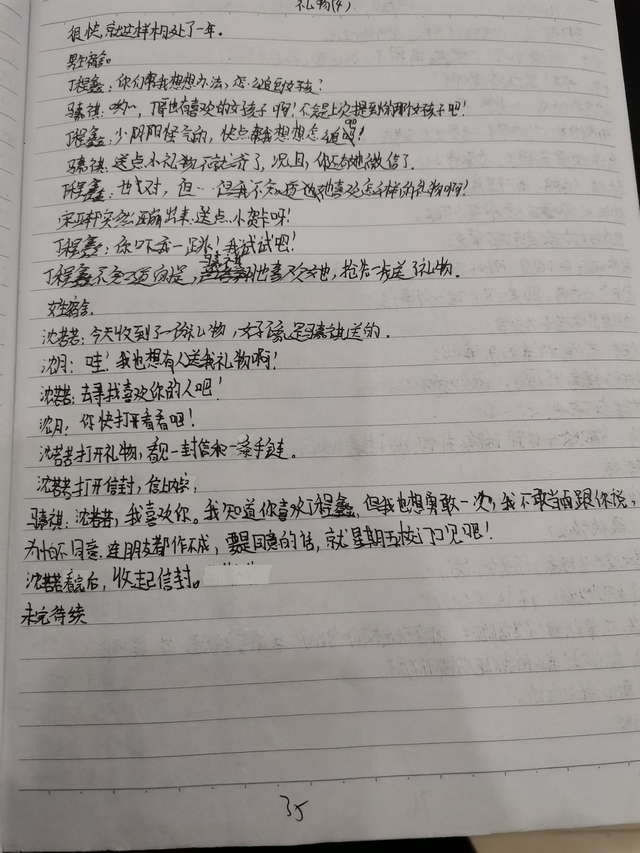 礼物(4)
很快,就这样相处了一年。
男生宿舍。
丁程鑫:你们帮我想想办法,怎么追到女孩?
马嘉祺:哟~,丁哥也有喜欢的女孩子啊!不会是上次提到的那个女孩子吧!
丁程鑫:少阴阳怪气的,快点帮我想想怎么追吧!
马嘉祺:送点小礼物不就济了,况且,你还有她微信了.
丁程鑫:也对,但…但我不知道她喜欢怎样的礼物啊?
宋亚轩突然 出来:送点小贺卡呀!
丁程鑫:你吓我一跳!我试试吧!
丁程鑫不知道的是,马嘉祺也喜欢女他,抢先一步送了礼物.
女生宿舍.
沈若若:今天收到了一份礼物,好像是马嘉祺送的.
沈月:哇!我也想有人送我礼物啊!
沈若若:去寻找喜欢你的人吧!
沈月:你快打开看看吧!
沈若若打开礼物,看见一封信和一条手链。
沈若若打开信封,信上内容:
马嘉祺:沈若若,我喜欢你。我知道你喜欢丁程鑫,但我也想勇敢一次,我不敢当面跟你说,
为怕不同意,连朋友都作不成,要是同意的话,就星期五校门口见吧!
沈若若看完后,收起信封。
未完待续
35